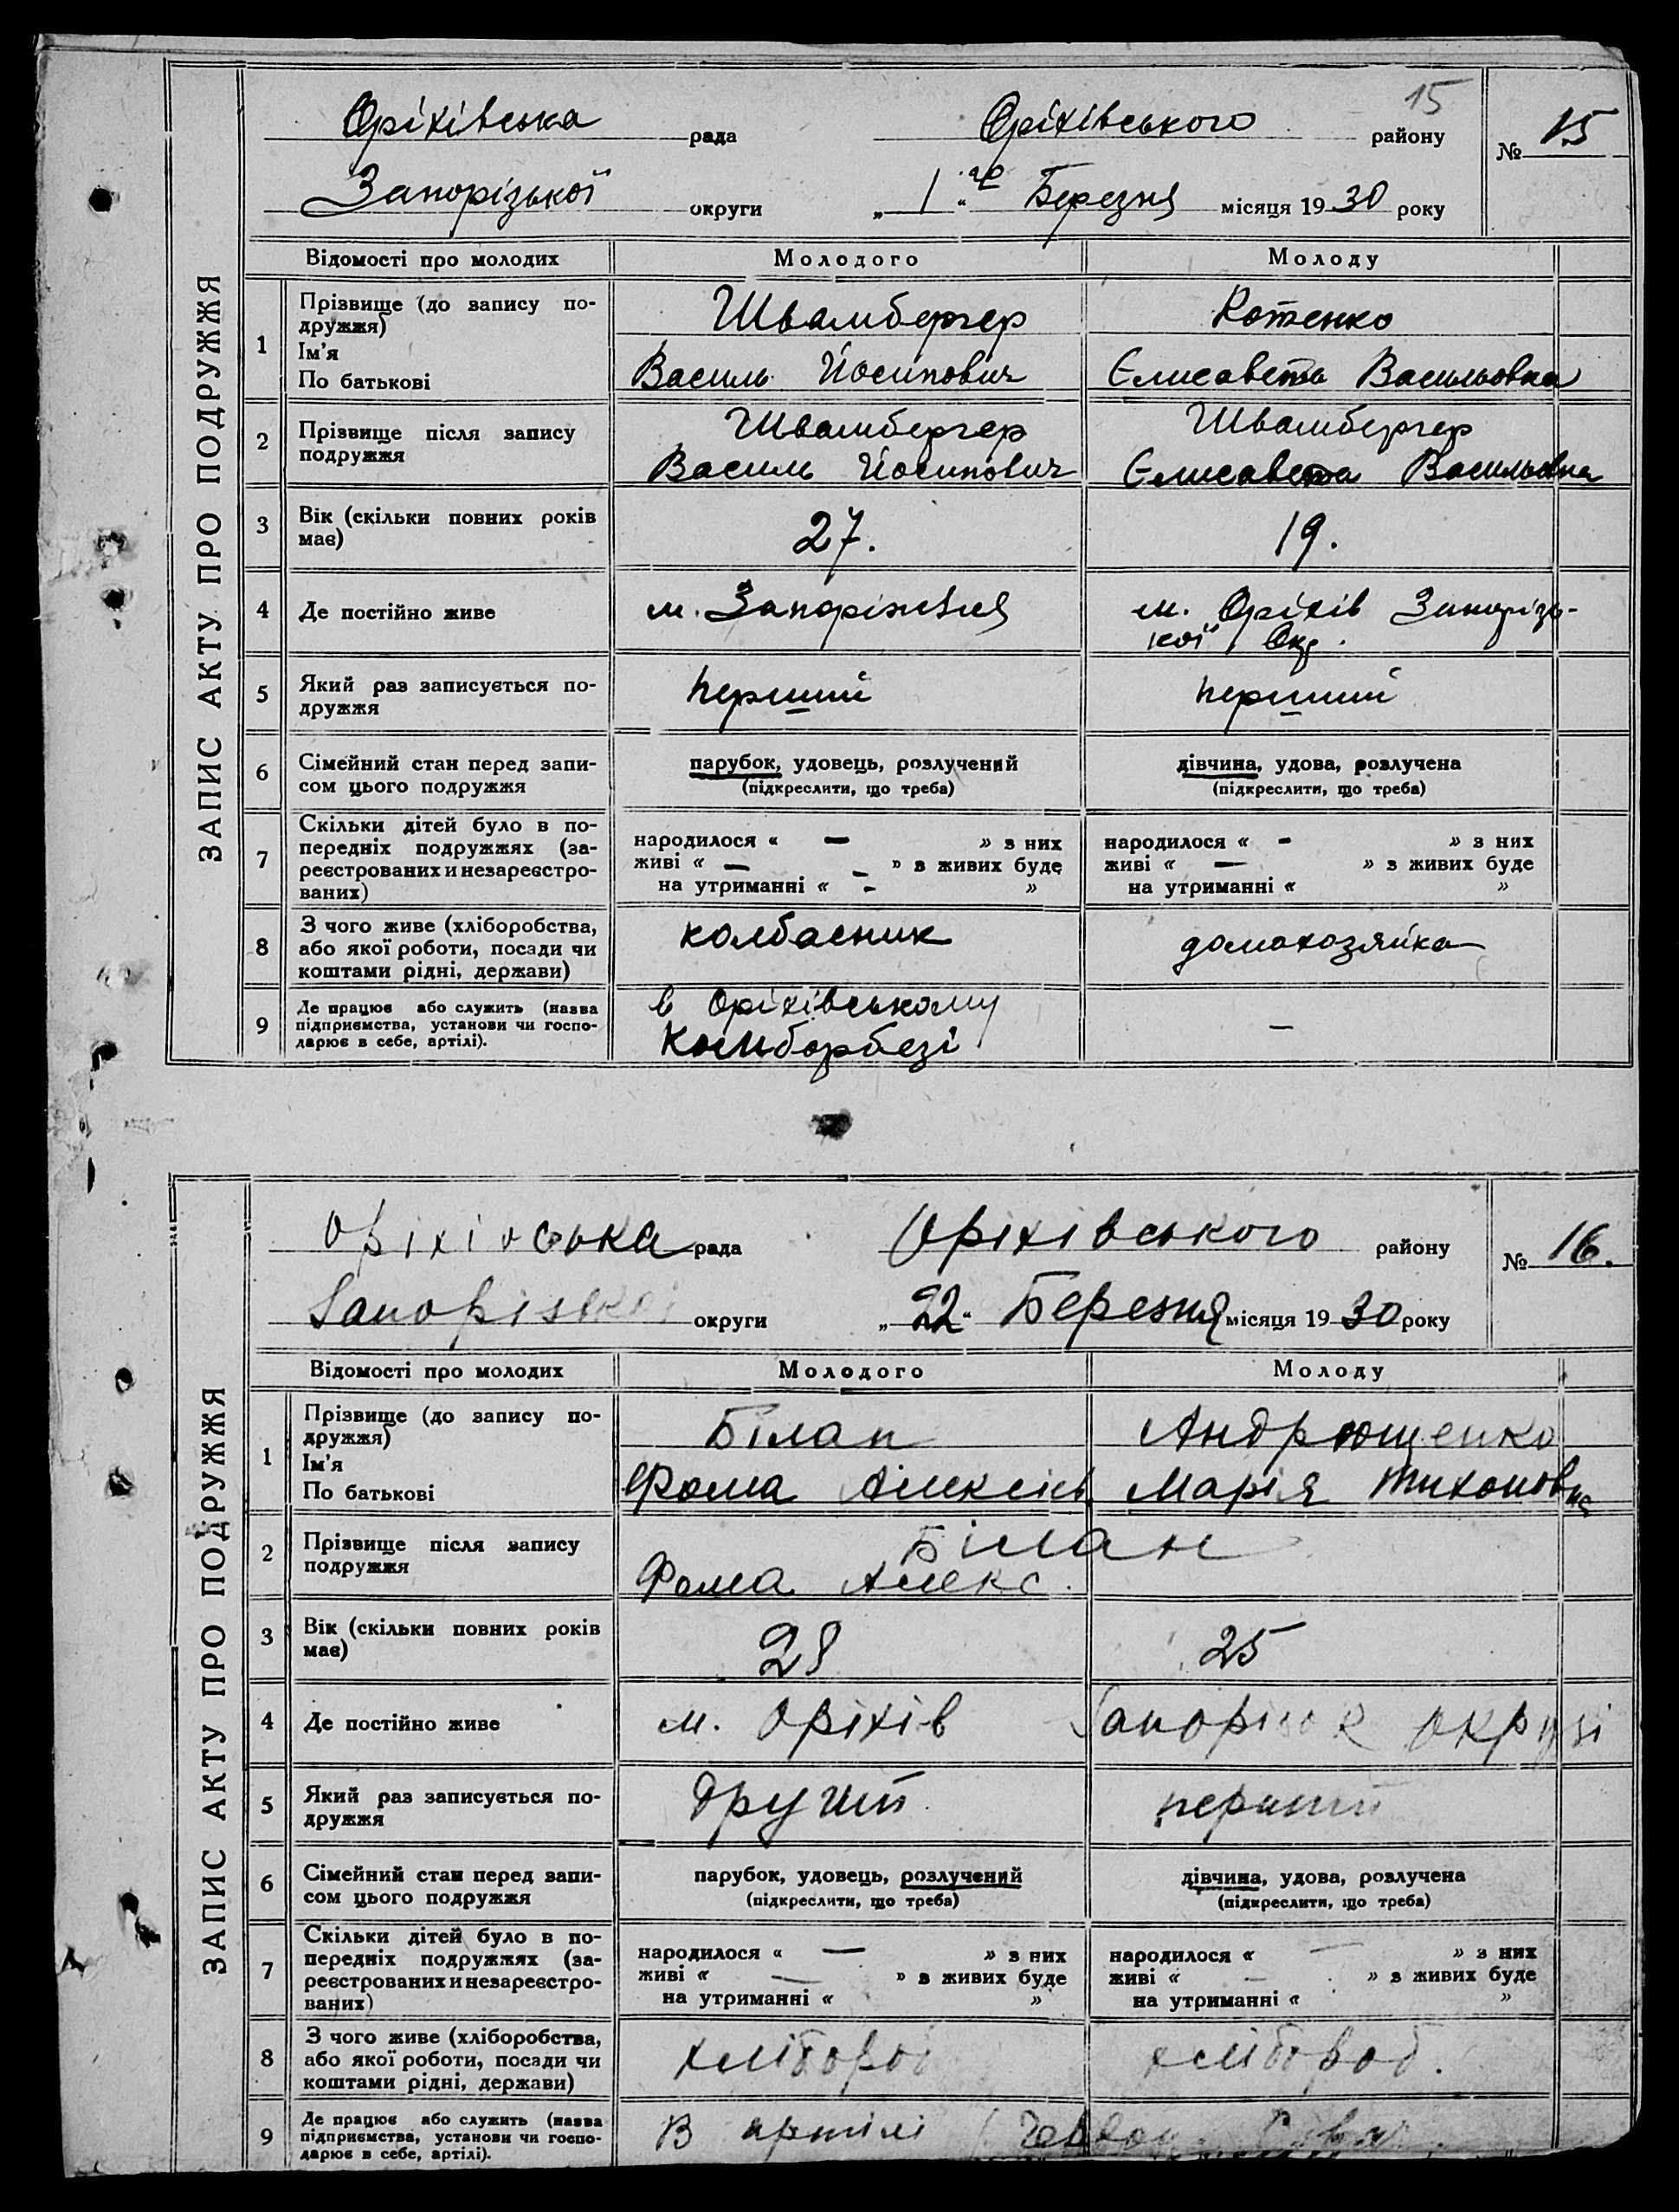 15
Оріхівська рада Оріхівського району № 15
Запорізької округи „ 1 “ го Березня місяця 1930 року
ЗАПИС АКТУ ПРО ПОДРУЖЖЯ
Відомості про молодих Молодого Молоду
1 Прізвище (до запису по-
дружжя)
Ім'я
По батькові
Швамбергер
Василь Йосипович
Котенко
Єлисавета Васильовна
2 Прізвище після запису
подружжя
Швамбергер
Василь Йосипович
Швамбергер
Єлисавета Васильовна
3 Вік (скільки повних років
має)
27.
19.
4 Де постійно живе
м. Запоріжжя
м. Оріхів Запорізь-
кої Окр.
5 Який раз записується по-
дружжя
перший
перший
6 Сімейний стан перед запи-
сом цього подружжя
парубок, удовець, розлучений
(підкреслити, що треба)
дівчина, удова, розлучена
(підкреслити, що треба)
7 Скільки дітей було в по-
передніх подружжях (за-
реєстрованих и незареєстро-
ваних)
народилося « — » з них
живі « — » з живих буде
на утриманні « — »
народилося « — » з них
живі « — » з живих буде
на утриманні « »
8 З чого живе (хліборобства,
або якої роботи, посади чи
коштами рідні, держави)
колбасник
домохозяйка
9 Де працює або служить (назва
підприємства, установи чи госпо-
дарює в себе, артілі).
в Оріхівському
Комборбезі
—
Оріхівська рада Оріхівського району № 16.
Запорізької округи „ 22 “ Березня місяця 1930 року
ЗАПИС АКТУ ПРО ПОДРУЖЖЯ
Відомості про молодих Молодого Молоду
1 Прізвище (до запису по-
дружжя)
Ім'я
По батькові
Білан
Фома Алексієв
Андрющенко
Марія Тихоновна
2 Прізвище після запису
подружжя
Білан
Фома Алекс.
3 Вік (скільки повних років
має)
28
25
4 Де постійно живе
м. Оріхів
Запорізьк округзі
5 Який раз записується по-
дружжя
другий
перший
6 Сімейний стан перед запи-
сом цього подружжя
парубок, удовець, розлучений
(підкреслити, що треба)
дівчина, удова, розлучена
(підкреслити, що треба)
7 Скільки дітей було в по-
передніх подружжях (за-
реєстрованих и незареєстро-
ваних)
народилося « — » з них
живі « — » з живих буде
на утриманні « »
народилося « — » з них
живі « — » з живих буде
на утриманні « »
8 З чого живе (хліборобства,
або якої роботи, посади чи
коштами рідні, держави)
хлібороб
хлібороб.
9 Де працює або служить (назва
підприємства, установи чи госпо-
дарює в себе, артілі).
В артілі